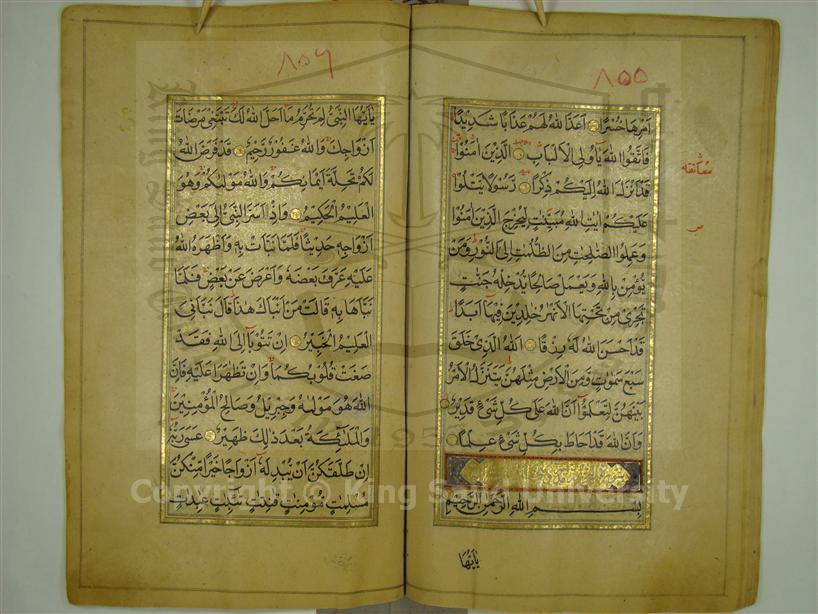 ٨٥٥
امرها خسرا اعد الله لهم عذابا شديدا
فاتقوا الله ياولى الالباب الذين امنوا
معانقه
قد انزل الله اليكم ذكرا رسولا يتلوا
عليكم ايت الله مبينت ليخرج الذين امنوا
وعملوا الصلحت من الظلمت الى النور ومن
يؤمن بالله ويعمل صالحا يدخله جنت
تجرى من تحتها الانهر خلدين فيها ابدا
قد احسن الله له رزقا الله الذى خلق
سبع سموت ومن الارض مثلهن يتنزل الامر
بينهن لتعلموا ان الله على كل شىء قدير
وان الله قد احاط بكل شىء علما
بسم الله الرحمن الرحيم
يايها
٨٥٦
يايها النبى لم تحرم ما احل الله لك تبتغى مرضات
ازواجك والله غفور رحيم قد فرض الله
لكم تحلة ايمانكم والله موليكم وهو
العليم الحكيم واذ اسر النبى الى بعض
ازواجه حديثا فلما نبات به واظهره الله
عليه عرف بعضه واعرض عن بعض فلما
نباها به قالت من انباك هذا قال نبانى
العليم الخبير ان تتوبا الى الله فقد
صغت قلوبكما وان تظهرا عليه فان
الله هو موليه وجبريل وصالح المؤمنين
والملئكة بعد ذلك ظهير عسى ربه
ان طلقكن ان يبدله ازواجا خيرا منكن
مسلمت مؤمنت قنتت تئبت عبدت
Copyright © King Saud University